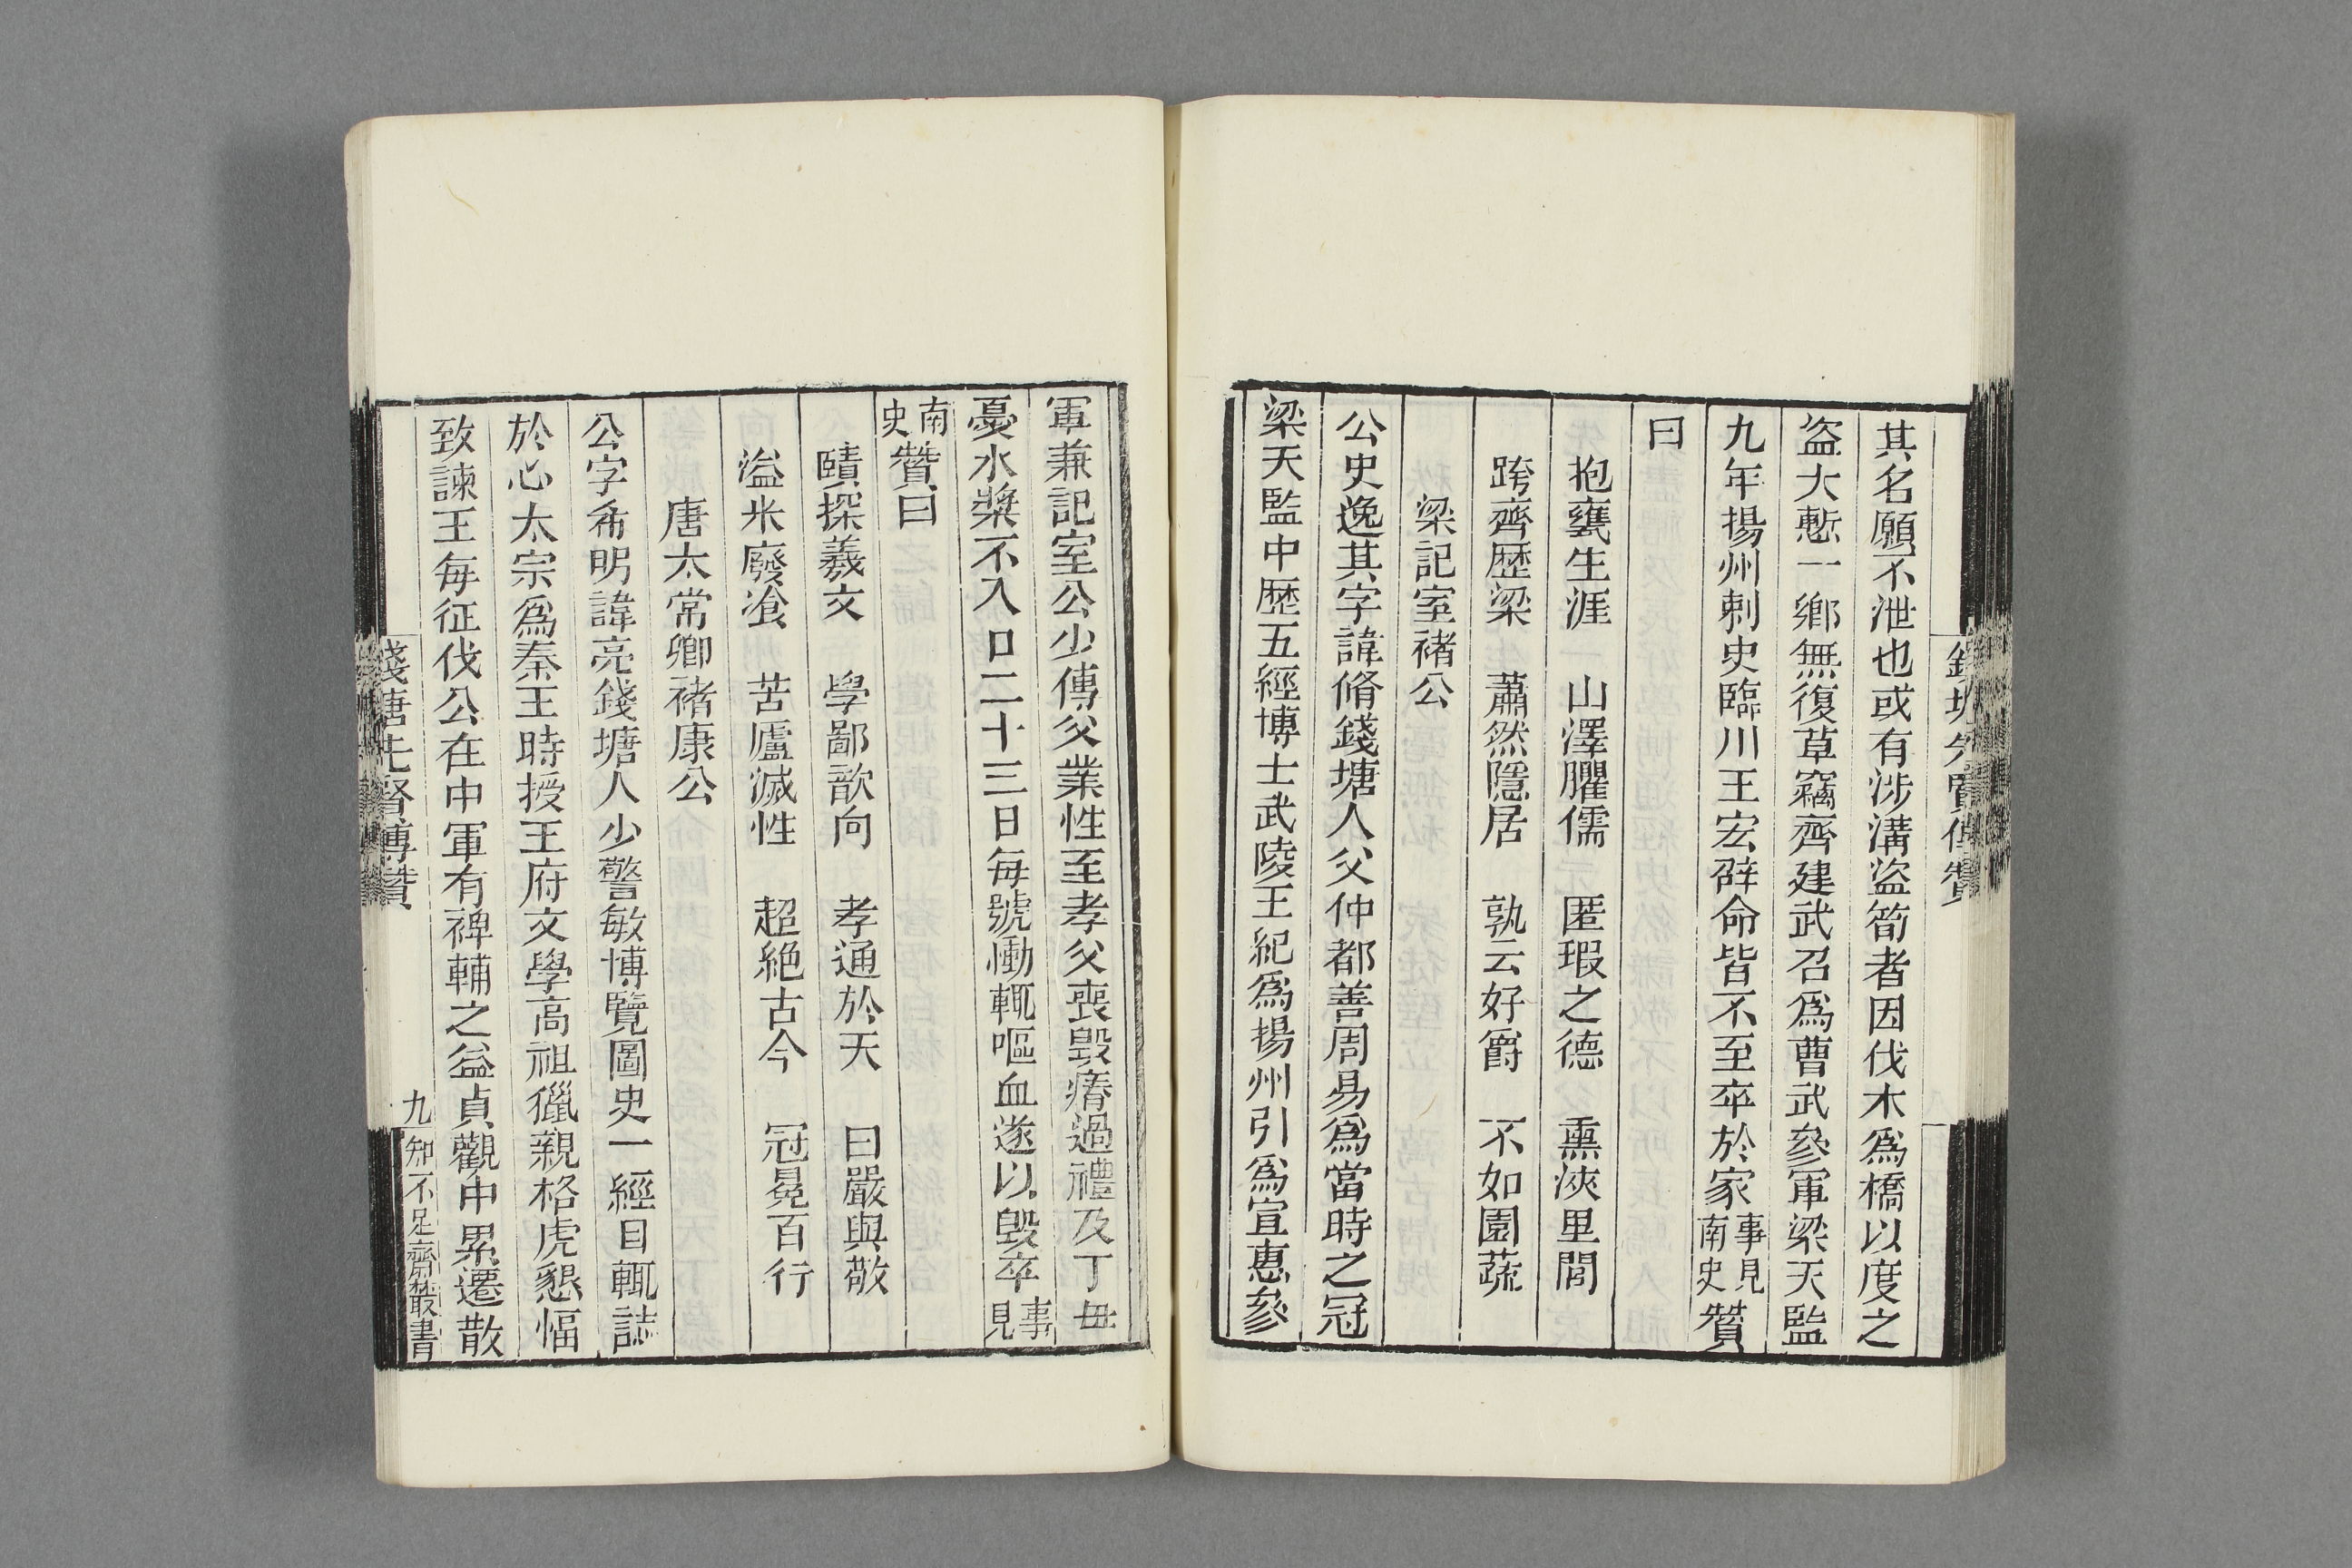 其名願不泄也或有涉溝盜筍者因伐木爲橋以度之
盜大慙一鄉無復草竊齊建武召爲曹武參軍梁天監
九年揚州刺史臨川王宏辟命皆不至卒於家事見南史贊
曰
抱甕生涯　山澤臞儒　匿瑕之德　熏浹里閭
跨齊歷梁　蕭然隱居　孰云好爵　不如園蔬
梁記室褚公
公史逸其字諱脩錢塘人父仲都善周易爲當時之冠
梁天監中歷五經博士武陵王紀爲揚州引爲宣惠參
軍兼記室公少傳父業性至孝父喪毀瘠過禮及丁母
憂水漿不入口二十三日每號慟輒嘔血遂以毀卒事見
南史贊曰
賾探羲文　學鄙歆向　孝通於天　曰嚴與敬
溢米廢飡　苫廬滅性　超絕古今　冠冕百行
唐太常卿褚康公
公字希明諱亮錢塘人少警敏博覽圖史一經目輒誌
於心太宗爲秦王時授王府文學高祖獵親格虎懇愊
致諫王每征伐公在中軍有裨輔之益貞觀中累遷散
錢塘先賢傳贊
九
知不足齋叢書